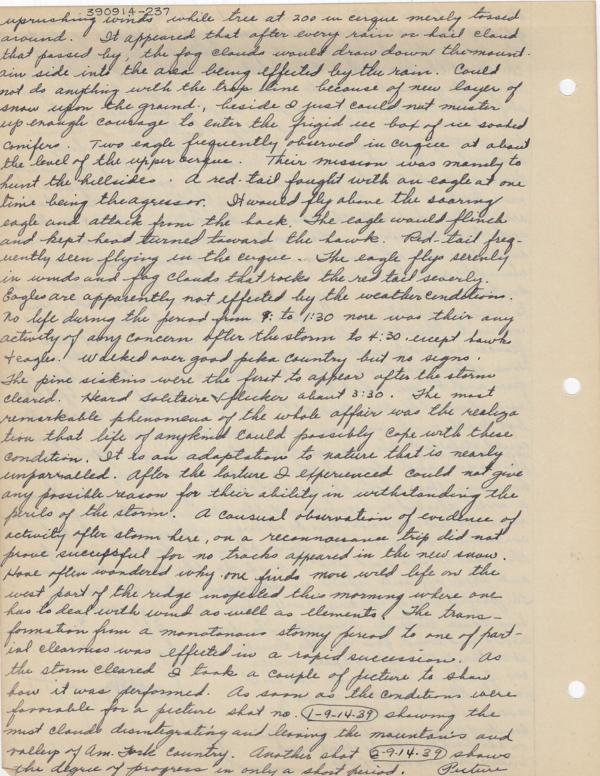 390914-237
uprushing winds while tree at 200 in cerque merely tossed
around. It appeared that after every rain or hail cloud
that passed by, the fog clouds would draw down the mount-
ain side into the area being effected by the rain. Could
not do anything with the trap line because of new layer of
snow upon the ground, beside I just could not muster
up enough courage to enter the frigid ice box of ice soaked
conifers. Two eagle frequently observed in cerque at about
the level of the upper cerque. Their mission was mainly to
hunt the hillsides. A red-tail fought with an eagle at one
time being the agressor. It would fly above the soaring
eagle and attack from the back. The eagle would flinch
and kept head turned toward the hawk. Red-tail freq-
uently seen flying in the cerque. The eagle flys serenly
in winds and fog clouds that rocks the red tail severly.
Eagles are apparently not effected by the weather conditions.
No life during the period from 9: to 1:30 nore was their any
activity of any concern after the storm to 4:30 except hawks
& eagles. Walked over good pika country but no signs.
The pine siskins were the first to appear after the storm
cleared. Heard solitaire & flicker about 3:30. The most
remarkable phenomena of the whole affair was the realiza
tion that life of anykind could possibly cope with these
condition. It is an adaptation to nature that is nearly
unparralled. After the torture I experienced could not give
any possible reason for their ability in withstanding the
perils of the storm. A causual observation of evidence of
activity after storm here, on a reconnaisance trip did not
prove successful for no tracks appeared in the new snow.
Have often wondered why one finds more wild life on the
west part of the ridge inspected this morning where one
has to deal with wind as well as elements. The trans-
formation from a monotonous stormy period to one of part-
ial clearness was effected in a rapid succession. As
the storm cleared I took a couple of picture to show
how it was performed. As soon as the conditions were
favorable for a picture shot no. 1-9-14-39 showing the
mist clouds disintegrating and leaving the mountains and
valleys of Am. Fork Country. Another shot 2-9-14-39 shows
the degree of progress in only a short period. Picture